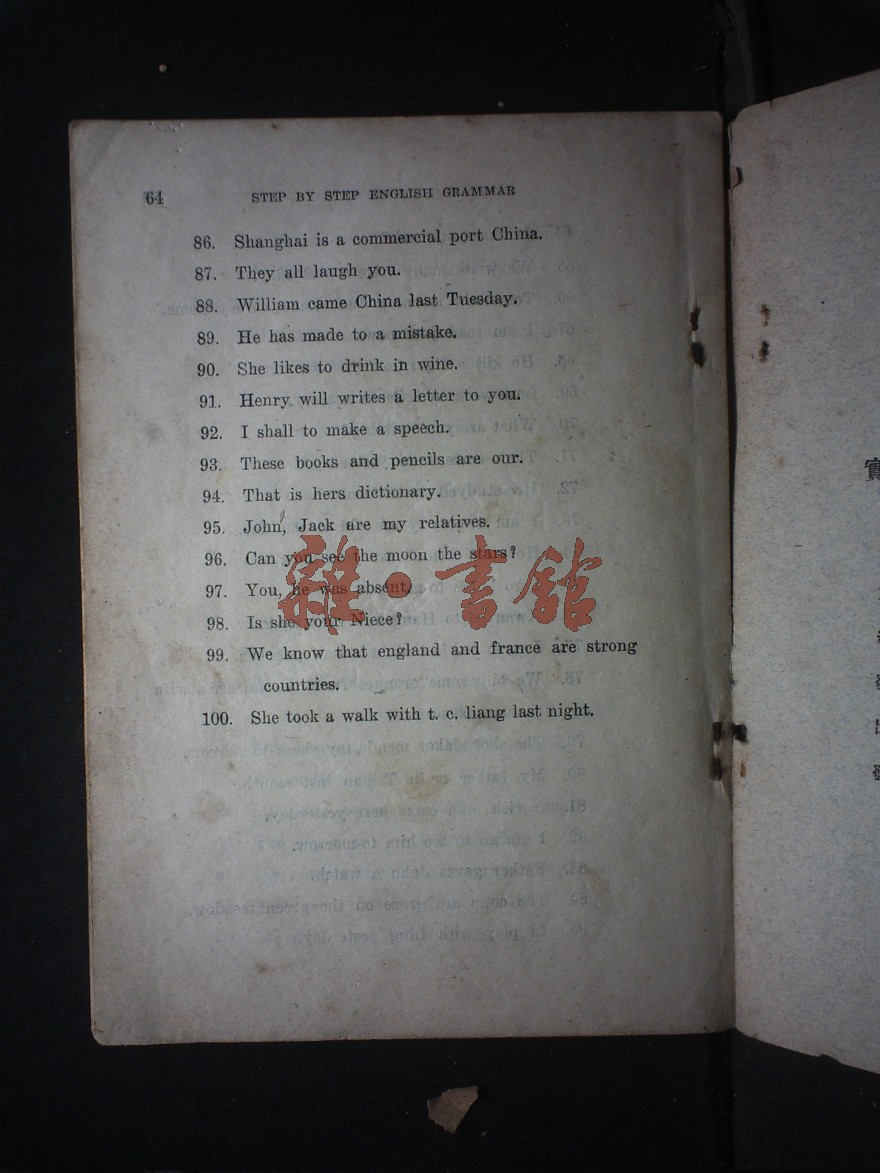 64 STEP BY STEP ENGLISH GRAMMAR
86. Shanghai is a commercial port China.
87. They all laugh you.
88. William came China last Tuesday.
89. He has made to a mistake.
90. She likes to drink in wine.
91. Henry will writes a letter to you.
92. I shall to make a speech.
93. These books and pencils are our.
94. That is hers dictionary.
95. John, Jack are my relatives.
96. Can you see the moon the stars?
97. You, he was absent.
98. Is she your Niece?
99. We know that england and france are strong
countries.
100. She took a walk with t. c. liang last night.
雜·書館